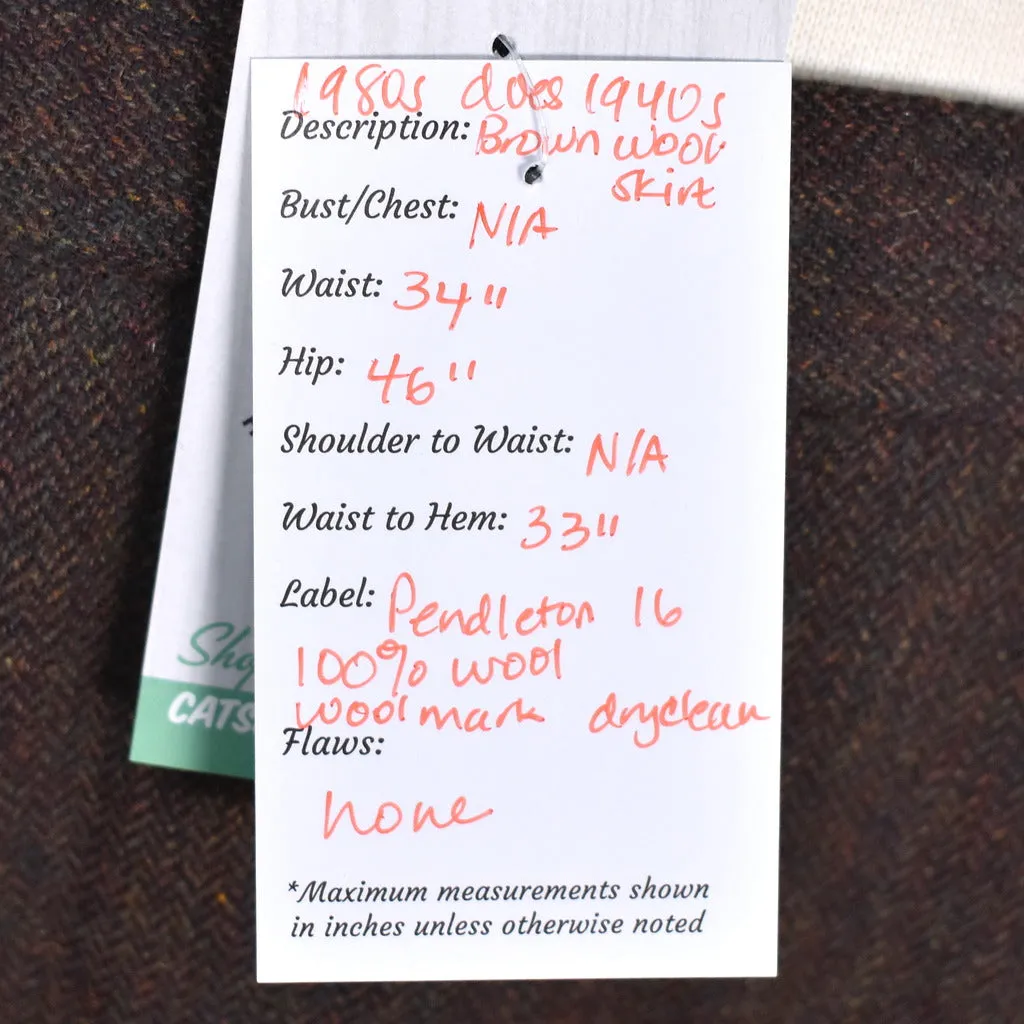 1980s does 1940s
Description: Brown wool
skirt
Bust/Chest: N/A
Waist: 34"
Hip: 46"
Shoulder to Waist: N/A
Waist to Hem: 33"
Label: Pendleton 16
100% wool
woolmark dryclean
Flaws:
none
*Maximum measurements shown
in inches unless otherwise noted
CATS